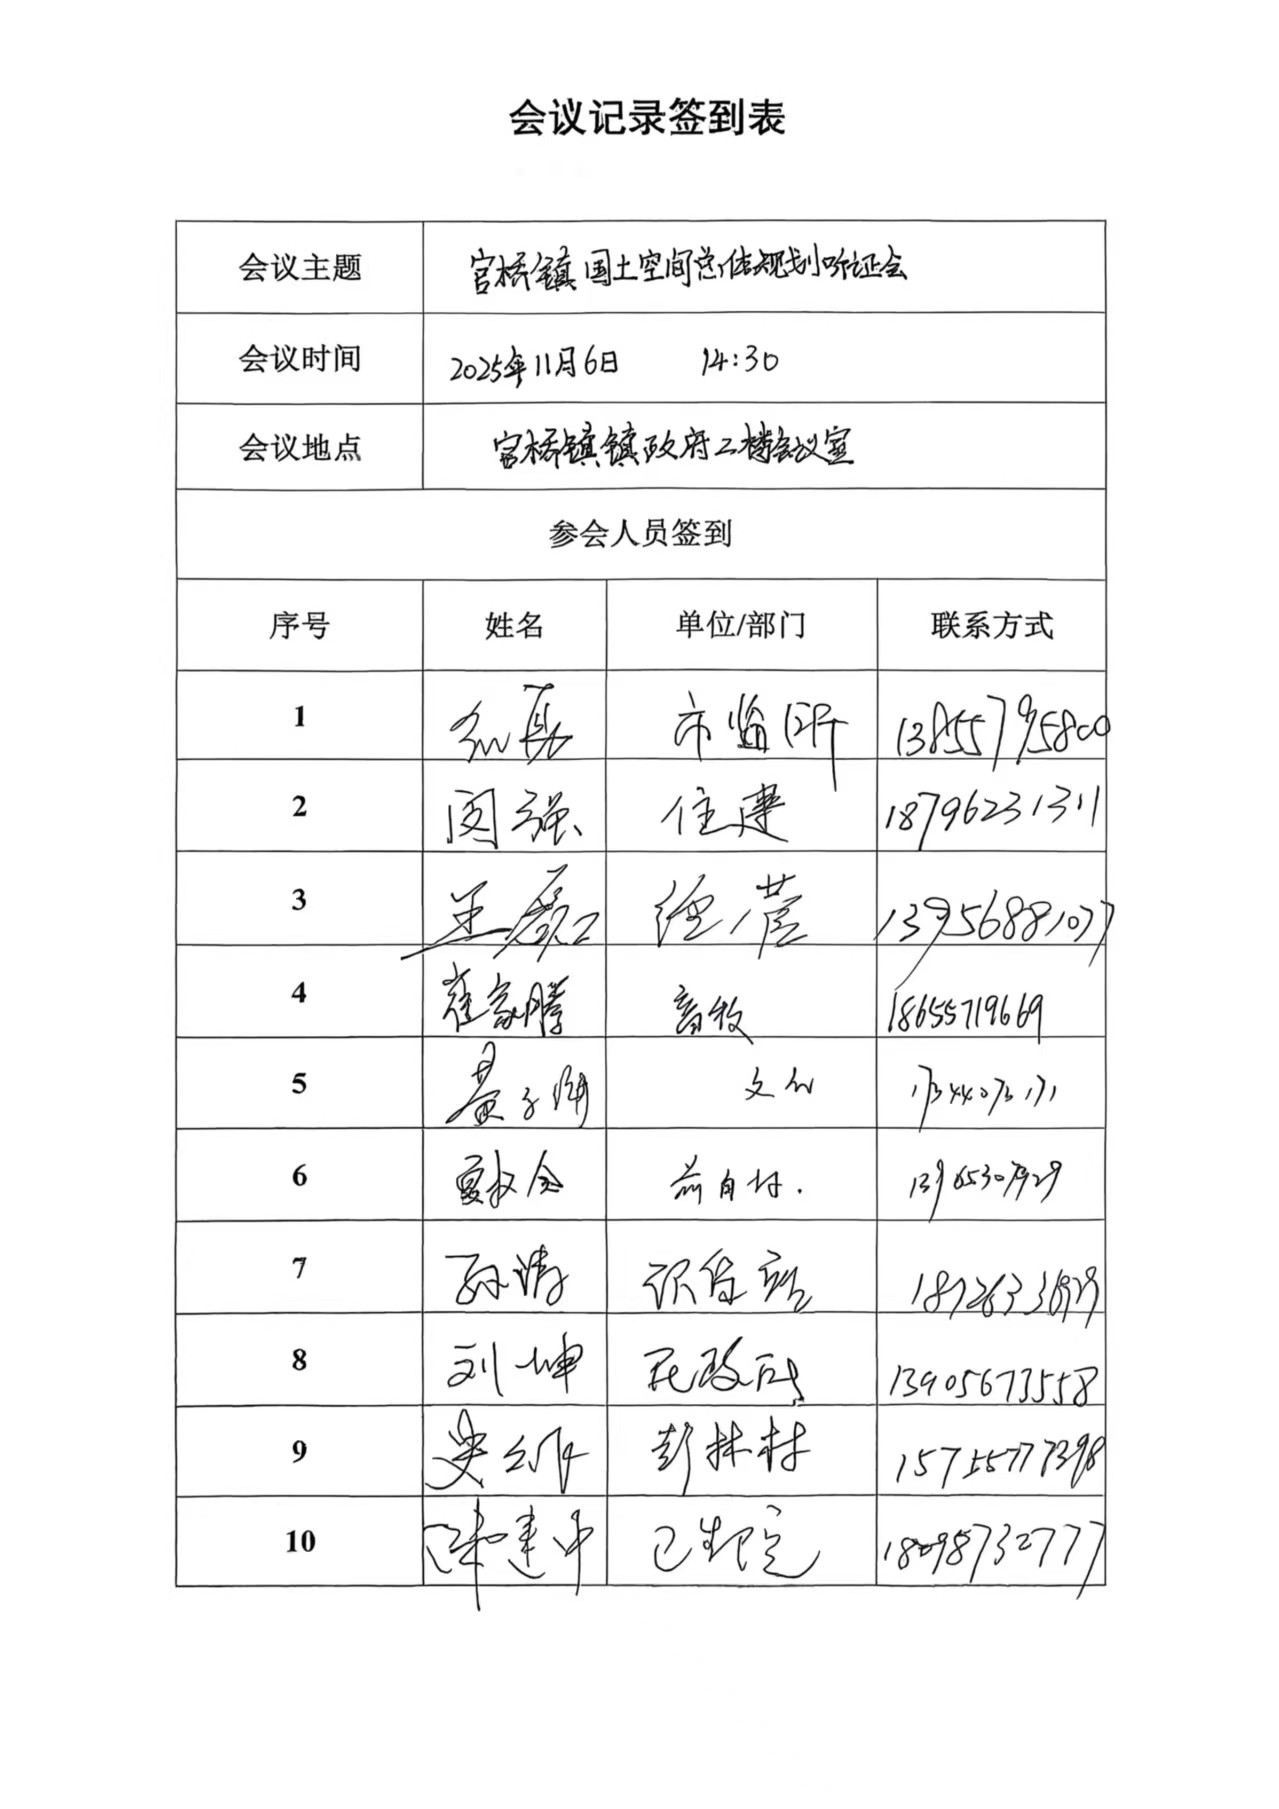 会议记录签到表
会议主题 官桥镇国土空间总体规划听证会
会议时间 2025年11月6日 14:30
会议地点 官桥镇镇政府二楼会议室
参会人员签到
序号 姓名 单位/部门 联系方式
1 市监所 13855795800
2 闵强 住建 18796231311
3 王磊 13956881077
4 崔家腾 畜牧 18655719669
5
6 夏叔全
7 孙涛
8 刘坤 民政所 13905673558
9 彭林村
10 陈建中 18098732777